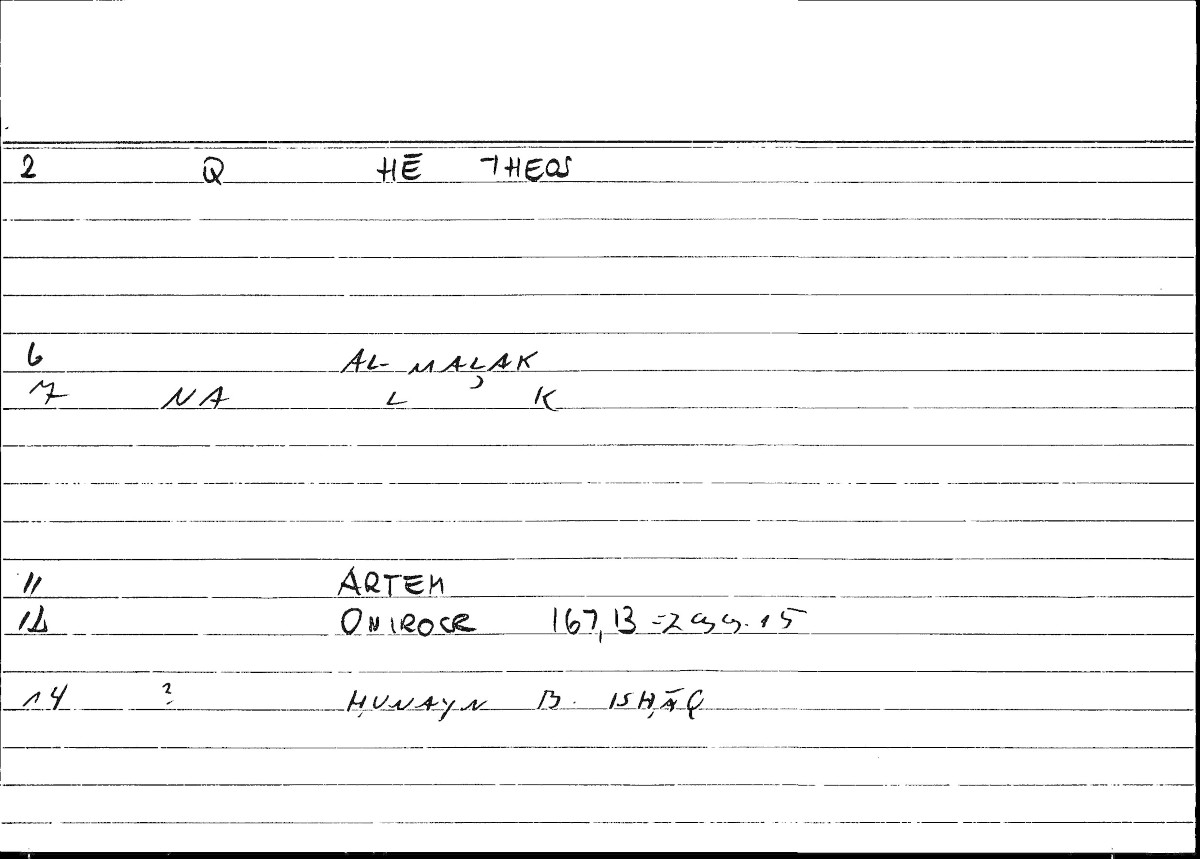 2 Q HĒ THEOS
6 AL-MALAK
7 NA L K
11 ARTEM
12 ONIROCR 167,13 = 299.15
14 ? ḤUNAYN B. ISḤĀQ